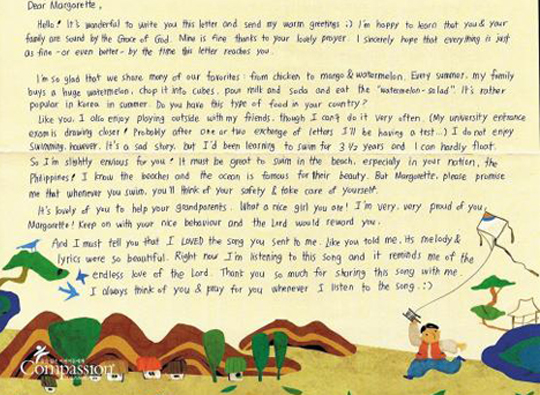 Dear Margarette,
Hello! It's wonderful to write you this letter and send my warm greetings :) I'm happy to learn that you & your
family are sound by the Grace of God. Mine is fine thanks to your lovely prayer. I sincerely hope that everything is just
as fine - or even better - by the time this letter reaches you.
I'm so glad that we share many of our favorites : from chicken to mango & watermelon. Every summer, my family
buys a huge watermelon, chop it into cubes, pour milk and soda and eat the "watermelon-salad". It's rather
popular in Korea in summer. Do you have this type of food in your country?
Like you, I also enjoy playing outside with my friends, though I can't do it very often. (My university entrance
exam is drawing closer! Probably after one or two exchange of letters I'll be having a test...) I do not enjoy
swimming, however. It's a sad story, but I'd been learning to swim for 3 1/2 years and I can hardly float.
So I'm slightly envious for you! It must be great to swim in the beach, especially in your nation, the
Philippines! I know the beaches and the ocean is famous for their beauty. But Margarette, please promise
me that whenever you swim, you'll think of your safety & take care of yourself.
It's lovely of you to help your grandparents. What a nice girl you are! I'm very, very proud of you,
Margarette! Keep on with your nice behaviour and the Lord would reward you.
And I must tell you that I LOVED the song you sent to me. Like you told me, its melody &
lyrics were so beautiful. Right now I'm listening to this song and it reminds me of the
endless love of the Lord. Thank you so much for sharing this song with me.
I always think of you & pray for you whenever I listen to the song. :)
Compassion